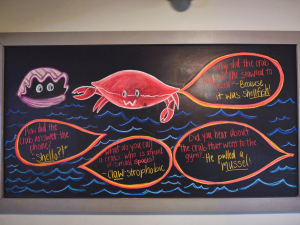 Why did the crab
seaweed to
- Because
it was shellfish!
How did the
crab answer the
phone?
- "Shello?!"
What do you call
a crab who is afraid
of small spaces?
- Claw-strophobic
Did you hear about
the crab that went to the
gym?
He pulled a
mussel!